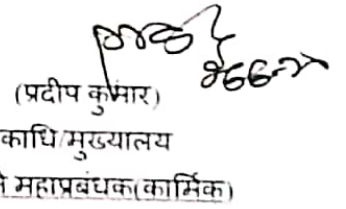 (प्रदीप कुमार)
काधि/मुख्यालय
महाप्रबंधक(कार्मिक)